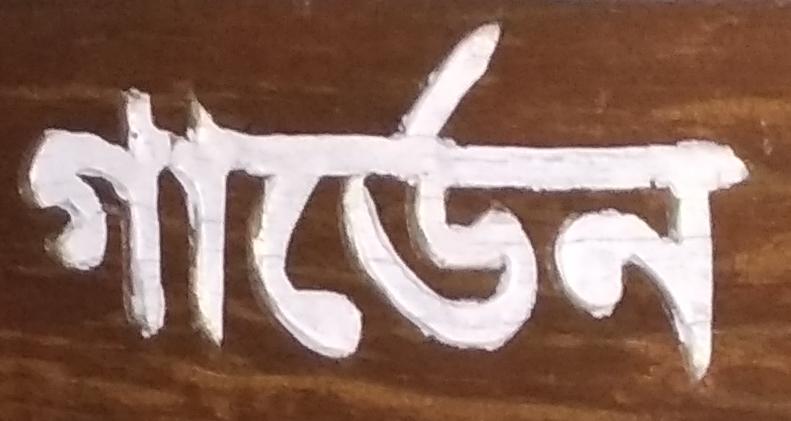 গার্ডেন